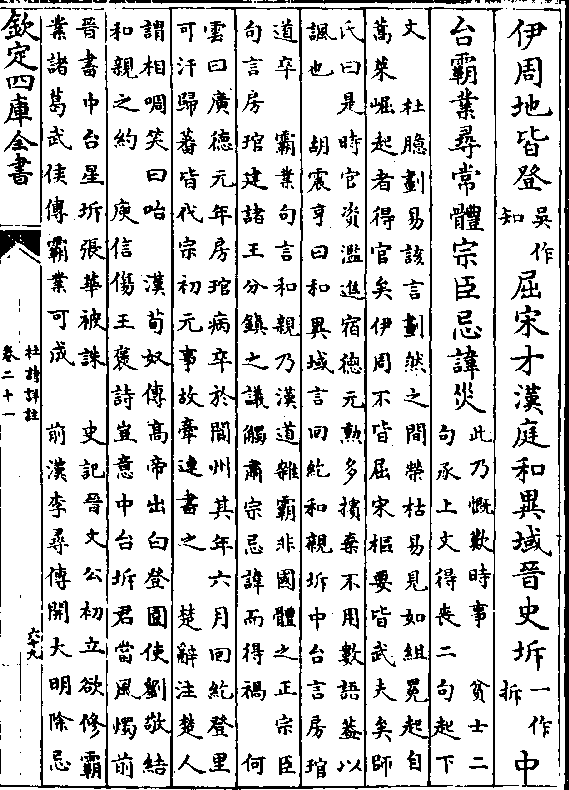 伊周地皆登吳作知屈宋才漢庭和異域晉史坼一作拆中
台霸業尋常體宗臣忌諱災此乃慨歎時事 貧士二
句承上文得喪二句起下
文 杜臆劃易該言劃然之間榮枯易見如組冕起自
蒿萊崛起者得官矣伊周不皆屈宋樞要皆武夫矣師
氏曰是時官資濫進宿德元勲多擯棄不用數語蓋以
諷也 胡震亨曰和異域言回紇和親坼中台言房琯
道卒 霸業句言和親乃漢道雜霸非國體之正宗臣
句言房琯建諸王分鎮之議觸肅宗忌諱而得禍 何
雲曰廣德元年房琯病卒於閬州其年六月回紇登里
可汗歸蕃皆代宗初元事故牽連書之 楚辭注楚人
謂相啁笑曰咍 漢匈奴傳高帝出白登圍使劉敬結
和親之約 庾信傷王褒詩豈意中台坼君當風燭前
晉書中台星坼張華被誅 史記晉文公初立欲修霸
業諸葛武侯傳霸業可成 前漢李尋傳開大明除忌
欽定四庫全書
杜詩詳註
卷二十一
六十九